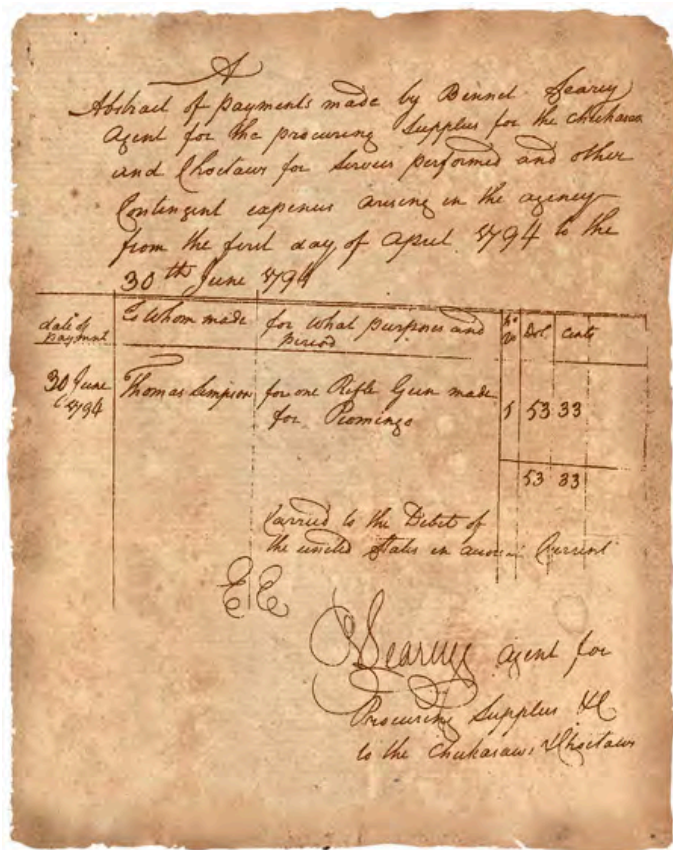 A
Abstract of payments made by Bennet Searcy
Agent for the procuring Supplies for the Chickasaws
and Choctaws for Services performed and other
Contingent expenses arising in the agency
from the first day of April 1794 to the
30th June 1794
date of payment To Whom made for what purposes and period No Vo Dol. Cents
30 June 1794 Thomas Simpson for one Rifle Gun made for Piomingo 1 53 33
53 33
Carried to the Debit of
the united States in account Current
E E
B Searcy agent for
Procuring Supplies &c
to the Chickasaws & Choctaws